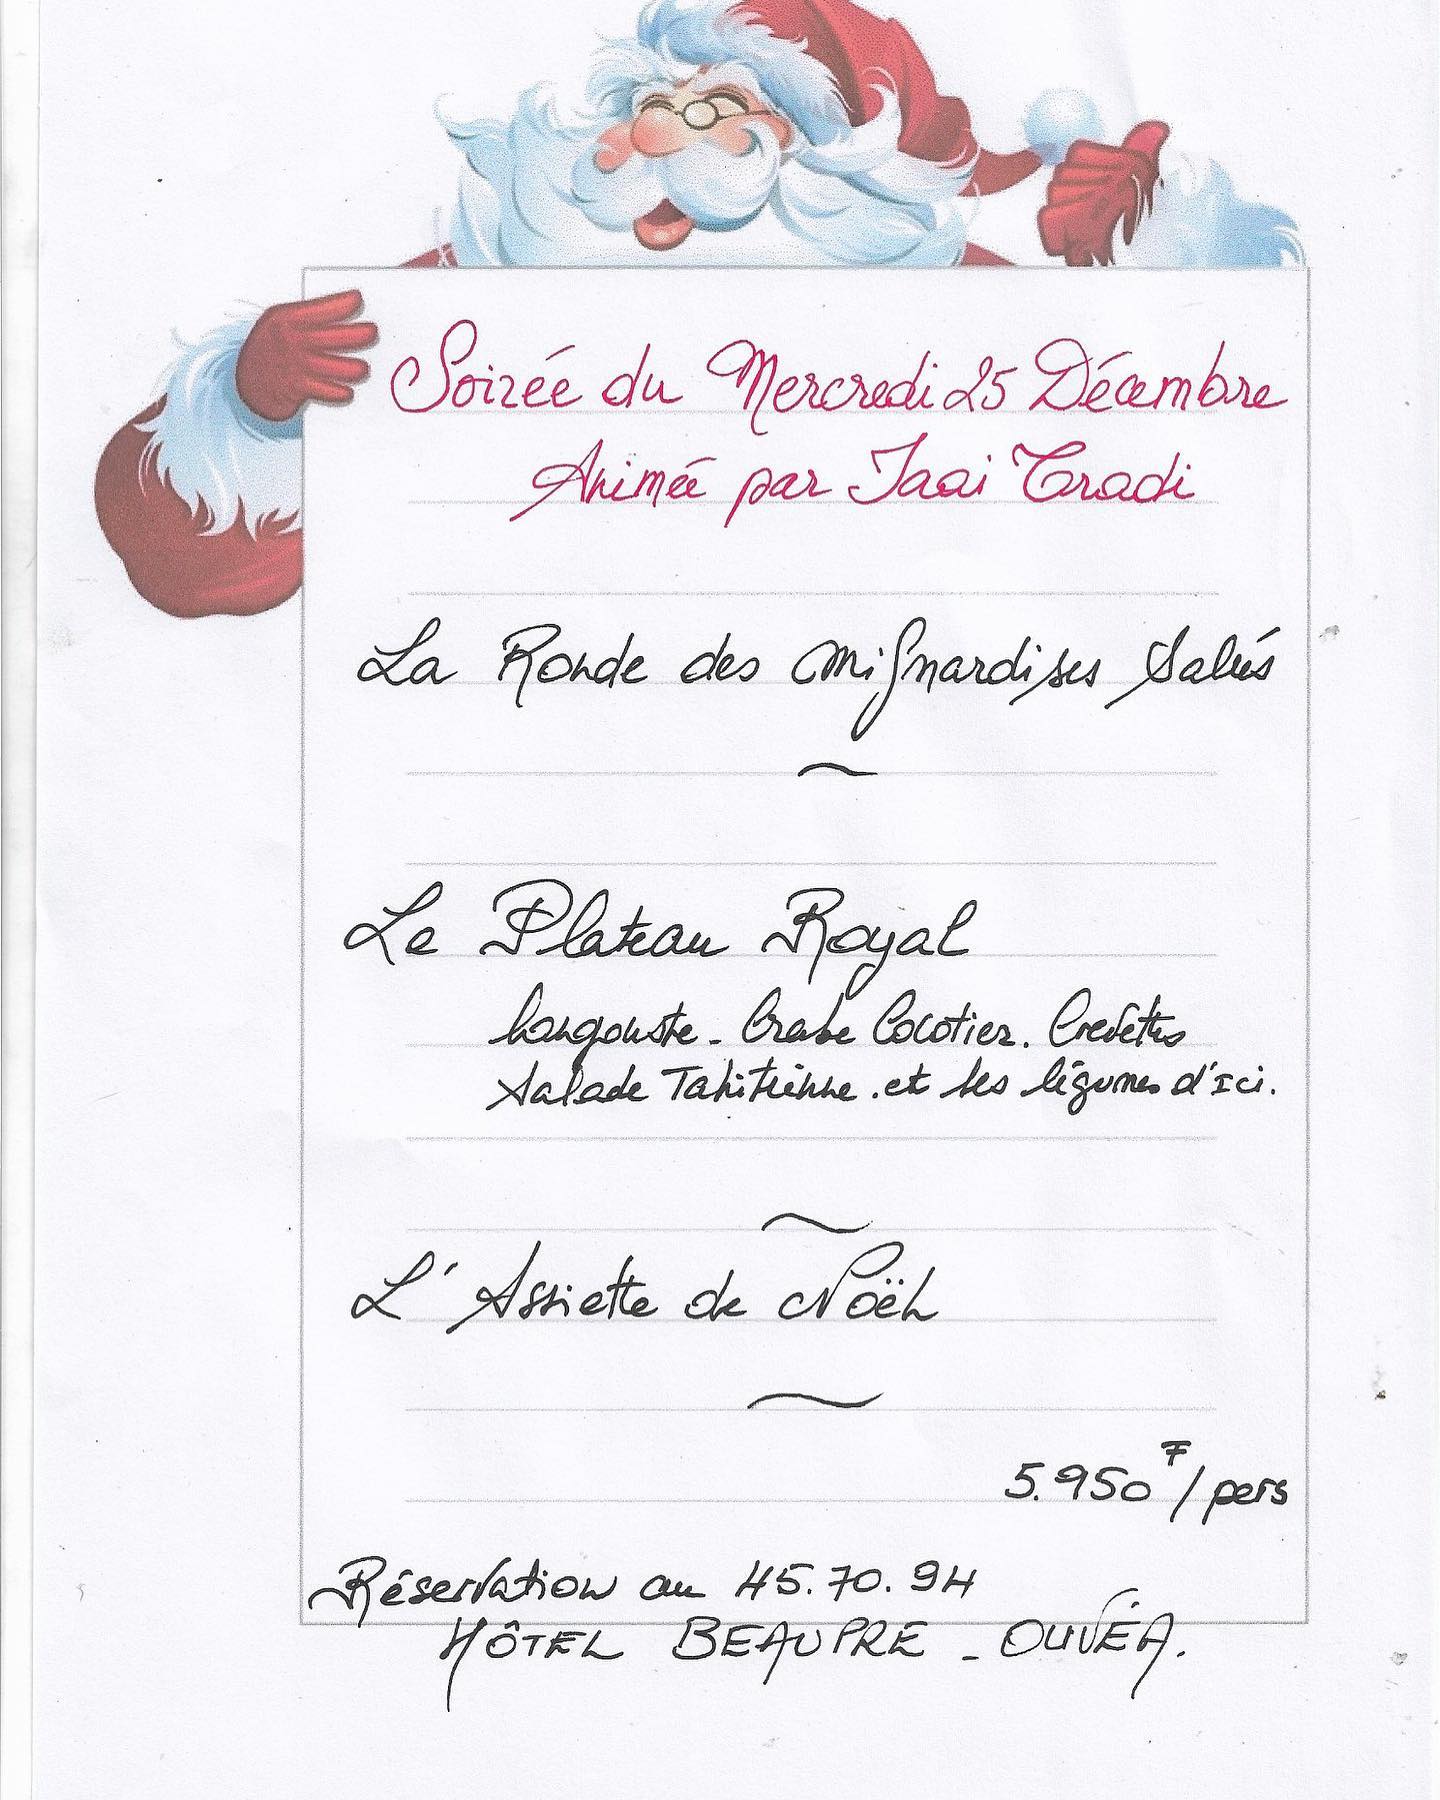 Soirée du Mercredi 25 Décembre
Animée par Iaai Tradi
La Ronde des Mignardises Salés
~
Le Plateau Royal
Langouste - Crabe Cocotier. Crevettes
Salade Tahitienne . et les légumes d'Ici.
~
L'Assiette de Noël
~
5.950 F / pers
Réservation au 45.70.94
HÔTEL BEAUPRE - OUVÉA.